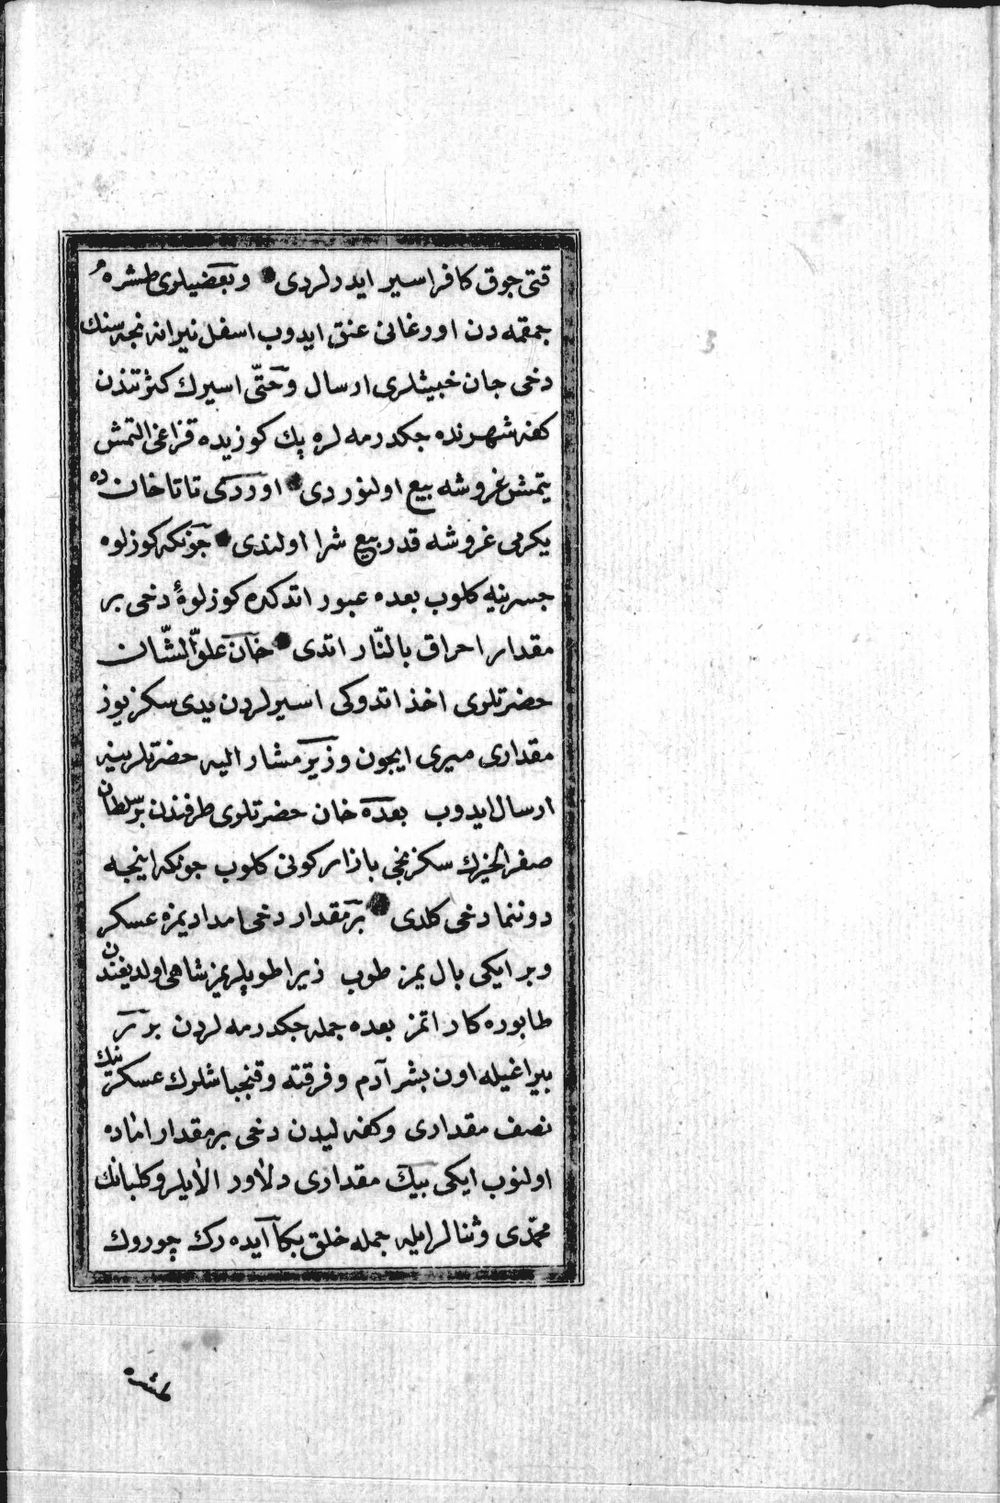 قتی جوق کافر اسیر ایدرلردی • وبعضیلری طشره
جمقمه دن اورغانی عنق ایدوب اسفل نیرانه نجه سنك
دخی جان خبیثلری ارسال وحتّی اسیرك کثرتندن
کفه شهرنده جکدرمه لره پك کوزیده قزاغی التمش
یتمش غروشه بیع اولنوردی • اوردکی تاتاخان ده
یکرمی غروشه قدر بیع شرا اولندی • جونکه کوزلوه
جسرینه کلوب بعده عبور اتدکده کوزلوهٔ دخی بر
مقدار احراق بالنّار اتدی • خان علوّ الشّان
حضرتلری اخذ اتدوکی اسیرلردن یدی سکز یوز
مقداری میری ایچون وزیر مشار الیه حضرتلرینه
ارسال ایدوب بعده خان حضرتلری طرفندن بر سلطان
صفر الخیرك سکزنجی بازار کونی کلوب جونکه اینجه
دوننما دخی کلدی • بر مقدار دخی امدادیمزه عسکر
وبر ایکی بال یمز طوب زیرا طوپلریمز شاهی اولدیغندن
طابوره کار اتمز بعده جمله جکدرمه لردن برر
بیراغیله اون بشر آدم وفرقته وقنجباشلرك عسکرینك
نصف مقداری وکفه لیدن دخی بر مقدار اماده
اولنوب ایکی بیك مقداری دلاور الایلر وکلبانك
محمّدی وثنالر ایله جمله خلق بکا آیده رك چوروك
طشره